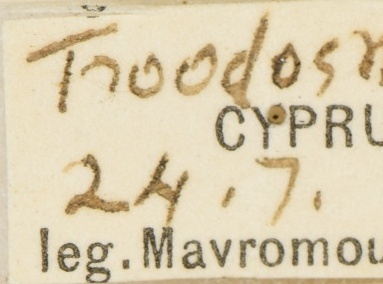 Troodos
CYPRU
24.7.
leg. Mavromou